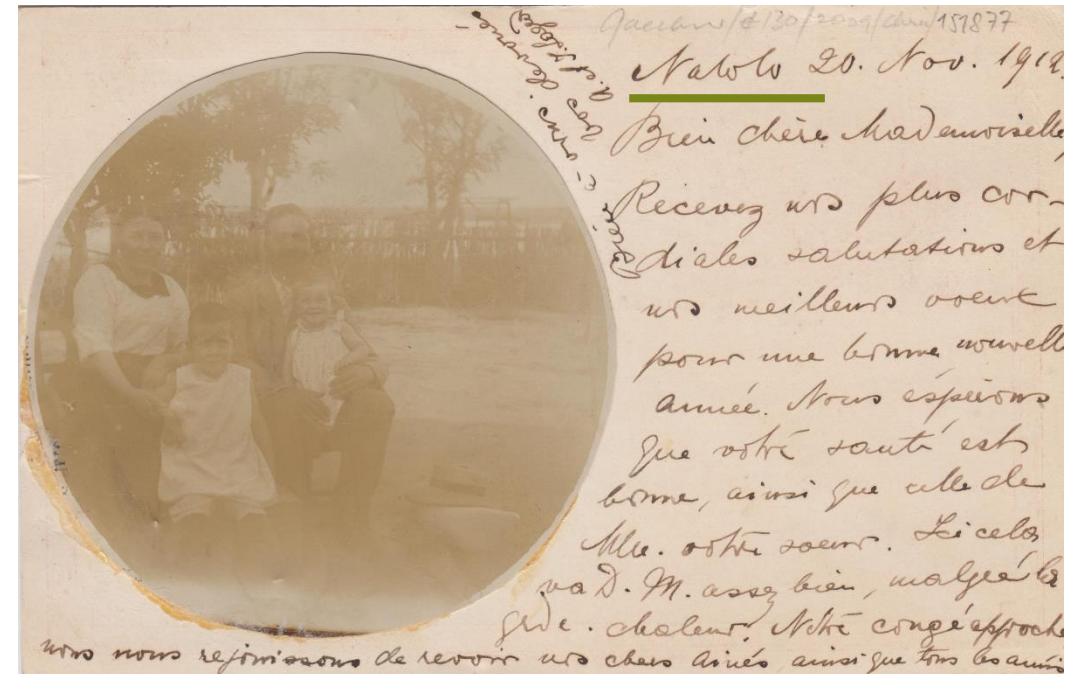 151877
Nalolo 20. Nov. 1912.
Bien chère Mademoiselle,
Recevez nos plus cor-
diales salutations et
nos meilleurs voeux
pour une bonne nouvelle
année. Nous espérons
que votre santé est
bonne, ainsi que celle de
Mlle. votre soeur. Ici cela
va D. M. assez bien, malgré la
gde. chaleur. Notre congé approche
nous nous rejouissons de revoir nos chers ainés, ainsi que tous les amis
vos dévoués